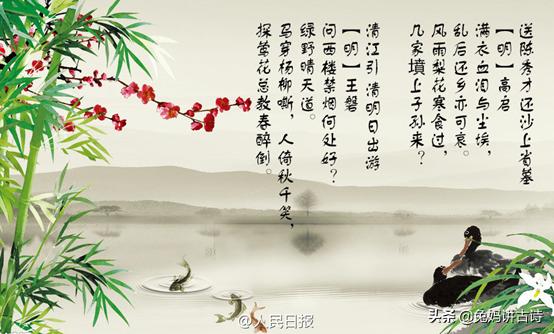 送陈秀才还沙上省墓
【明】高启
满衣血泪与尘埃，
乱后还乡亦可哀。
风雨梨花寒食过，
几家墳上子孙来？
清江引 清明日出游
【明】王磐
问西楼禁烟何处好？
绿野晴天道。
马穿杨柳嘶，人倚秋千笑，
探莺花总教春醉倒。
@人民日报
头条 @兔妈讲古诗